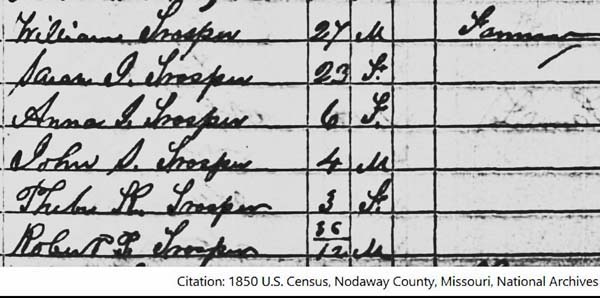 William Trosper 27 M Farmer
Sarah J. Trosper 23 F.
Anna J. Trosper 6 F.
John S. Trosper 4 M
Trosper 3 F.
Robert F Trosper 10/12 M
Citation: 1850 U.S. Census, Nodaway County, Missouri, National Archives